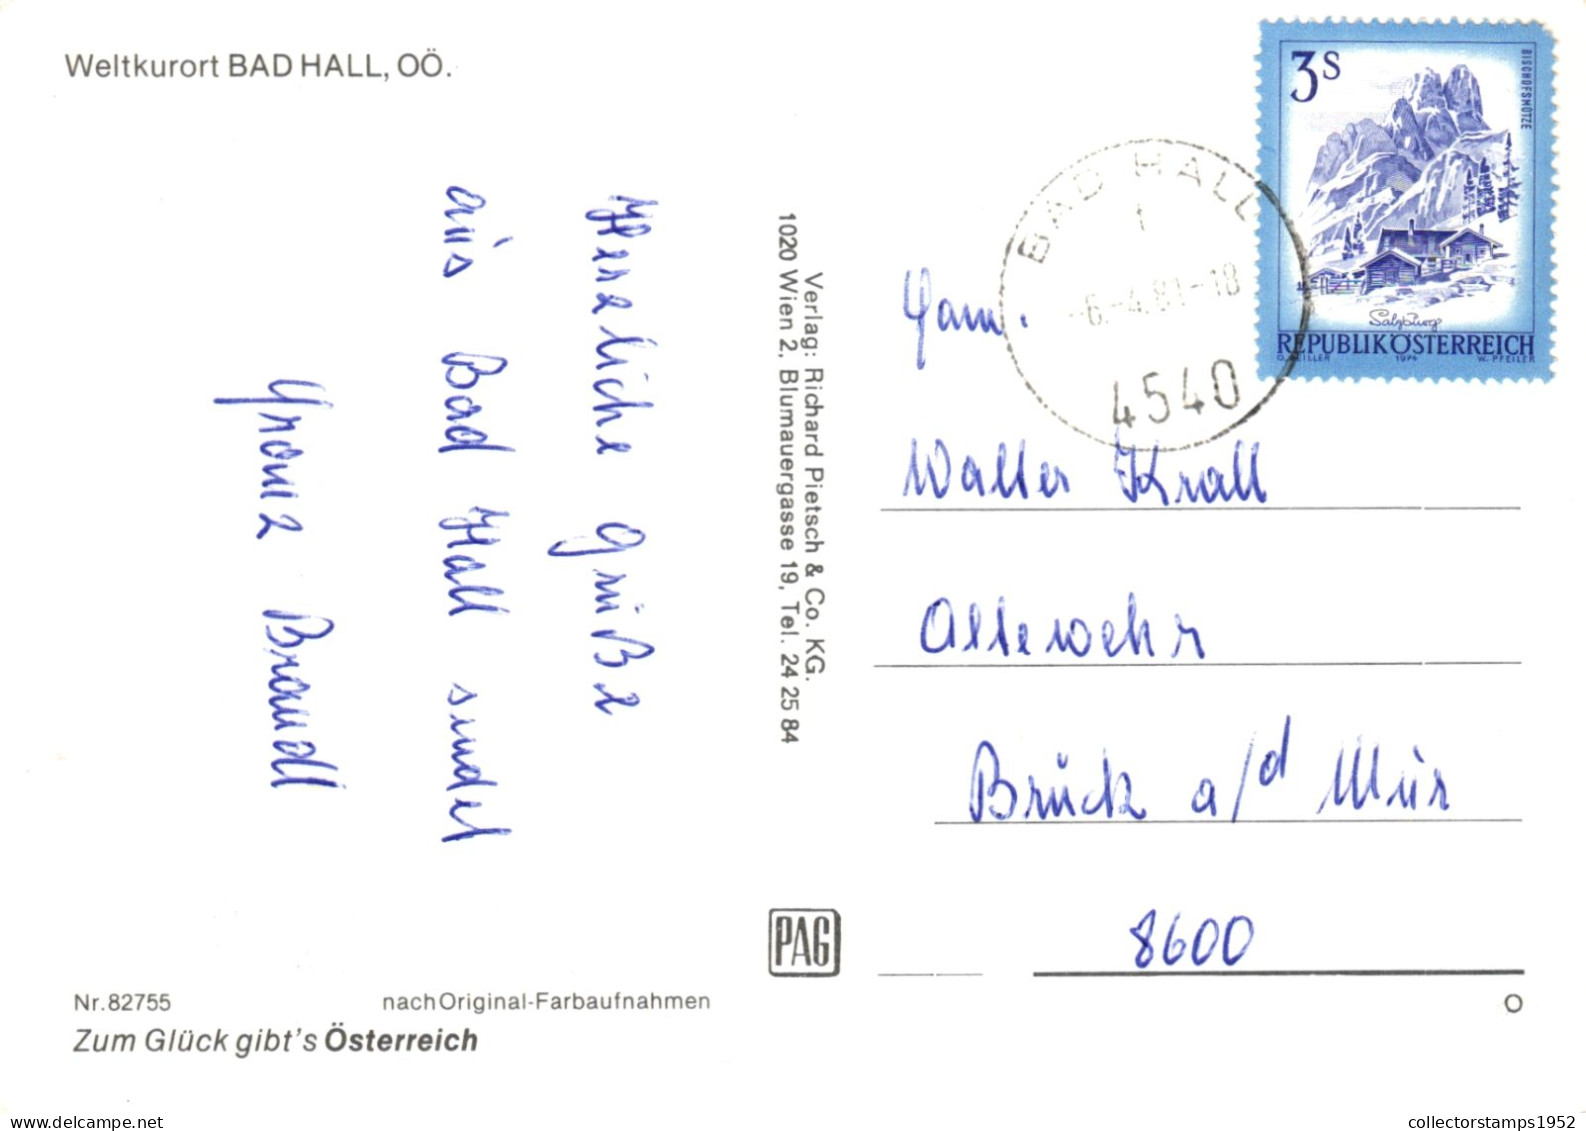 Weltkurort BAD HALL, OÖ.
Herzliche Grüße
aus Bad Hall sendet
Franz Brandl
Verlag: Richard Pietsch & Co. KG.
1020 Wien 2, Blumauergasse 19, Tel. 24 25 84
3S
BISCHOFSMÜTZE
Salzburg
REPUBLIK ÖSTERREICH
O. ZEILLER 1974 W. PFEILER
BAD HALL
1
-6.-4.81-18
4540
Fam.
Walter Krall
Bruck a/d Mur
8600
PAG
Nr. 82755 nach Original-Farbaufnahmen
Zum Glück gibt's Österreich
O
collectorstamps1952